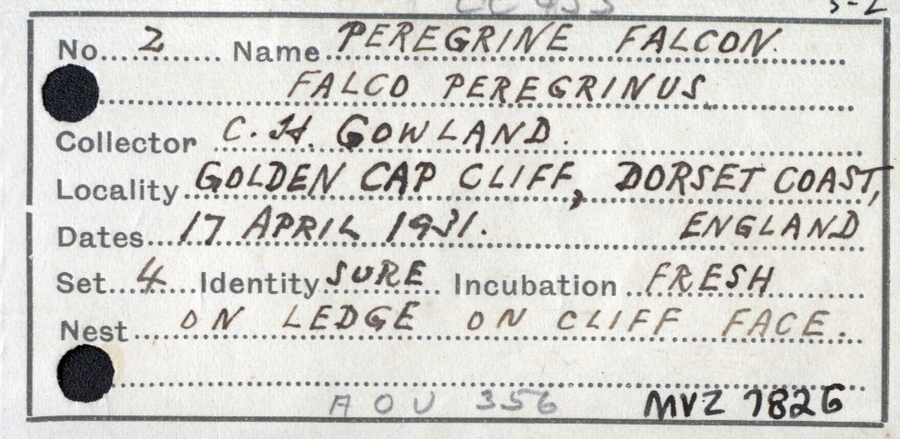 No. 2 Name PEREGRINE FALCON.
FALCO PEREGRINUS
Collector C. H. GOWLAND.
Locality GOLDEN CAP CLIFF, DORSET COAST,
Dates 17 APRIL 1931. ENGLAND
Set 4 Identity SURE Incubation FRESH
Nest ON LEDGE ON CLIFF FACE.
AOU 356 MVZ 7826